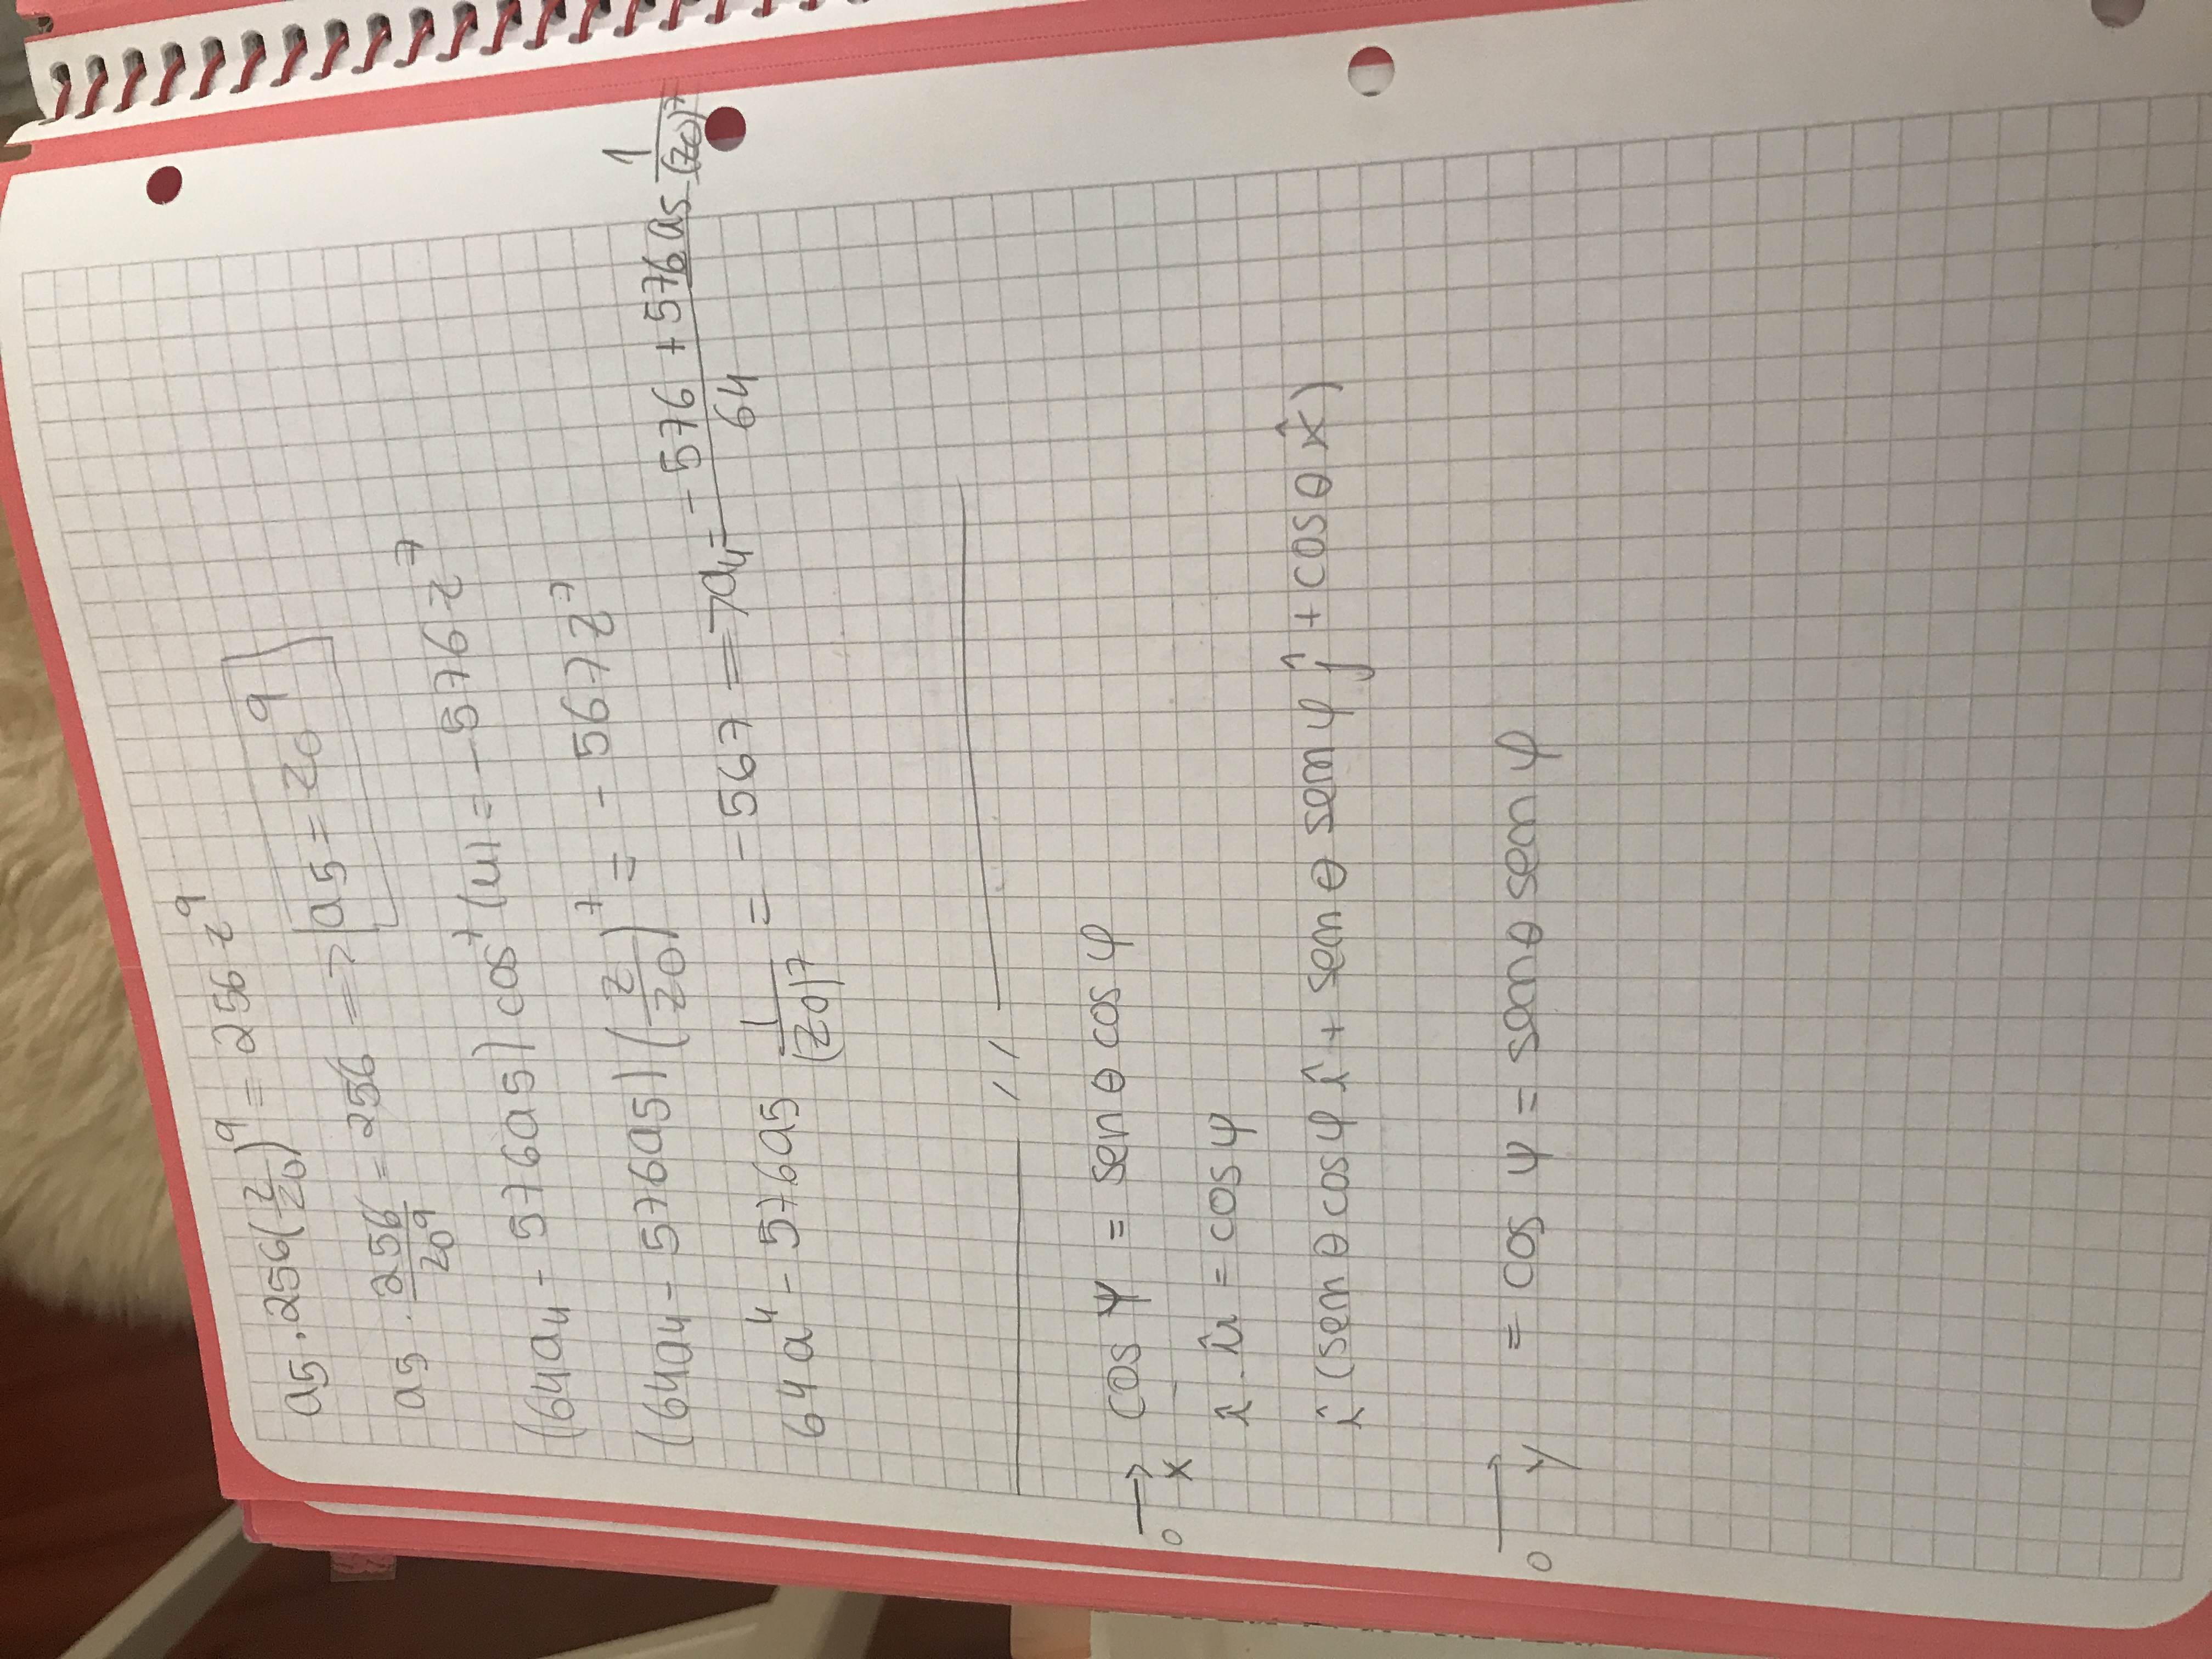 a5 . 256 (z/z0)^9 = 256 z^9
a5 . 256/z0^9 = 256 => a5 = z0^9
(64a4 - 576a5) cos^7 (u) = - 576 z^7
(64a4 - 576a5) (z/z0)^7 = - 567 z^7
64a^4 - 576a5 1/(z0)^7 = - 567 => a4 = (-576 + 576 a5 1/(z0)^7)/64
//
→ cos ψ = sen θ cos φ
o x
î . û = cos ψ
î (sen θ cos φ î + sen θ sen φ ĵ + cos θ k̂)
→ = cos ψ = sen θ sen φ
o y